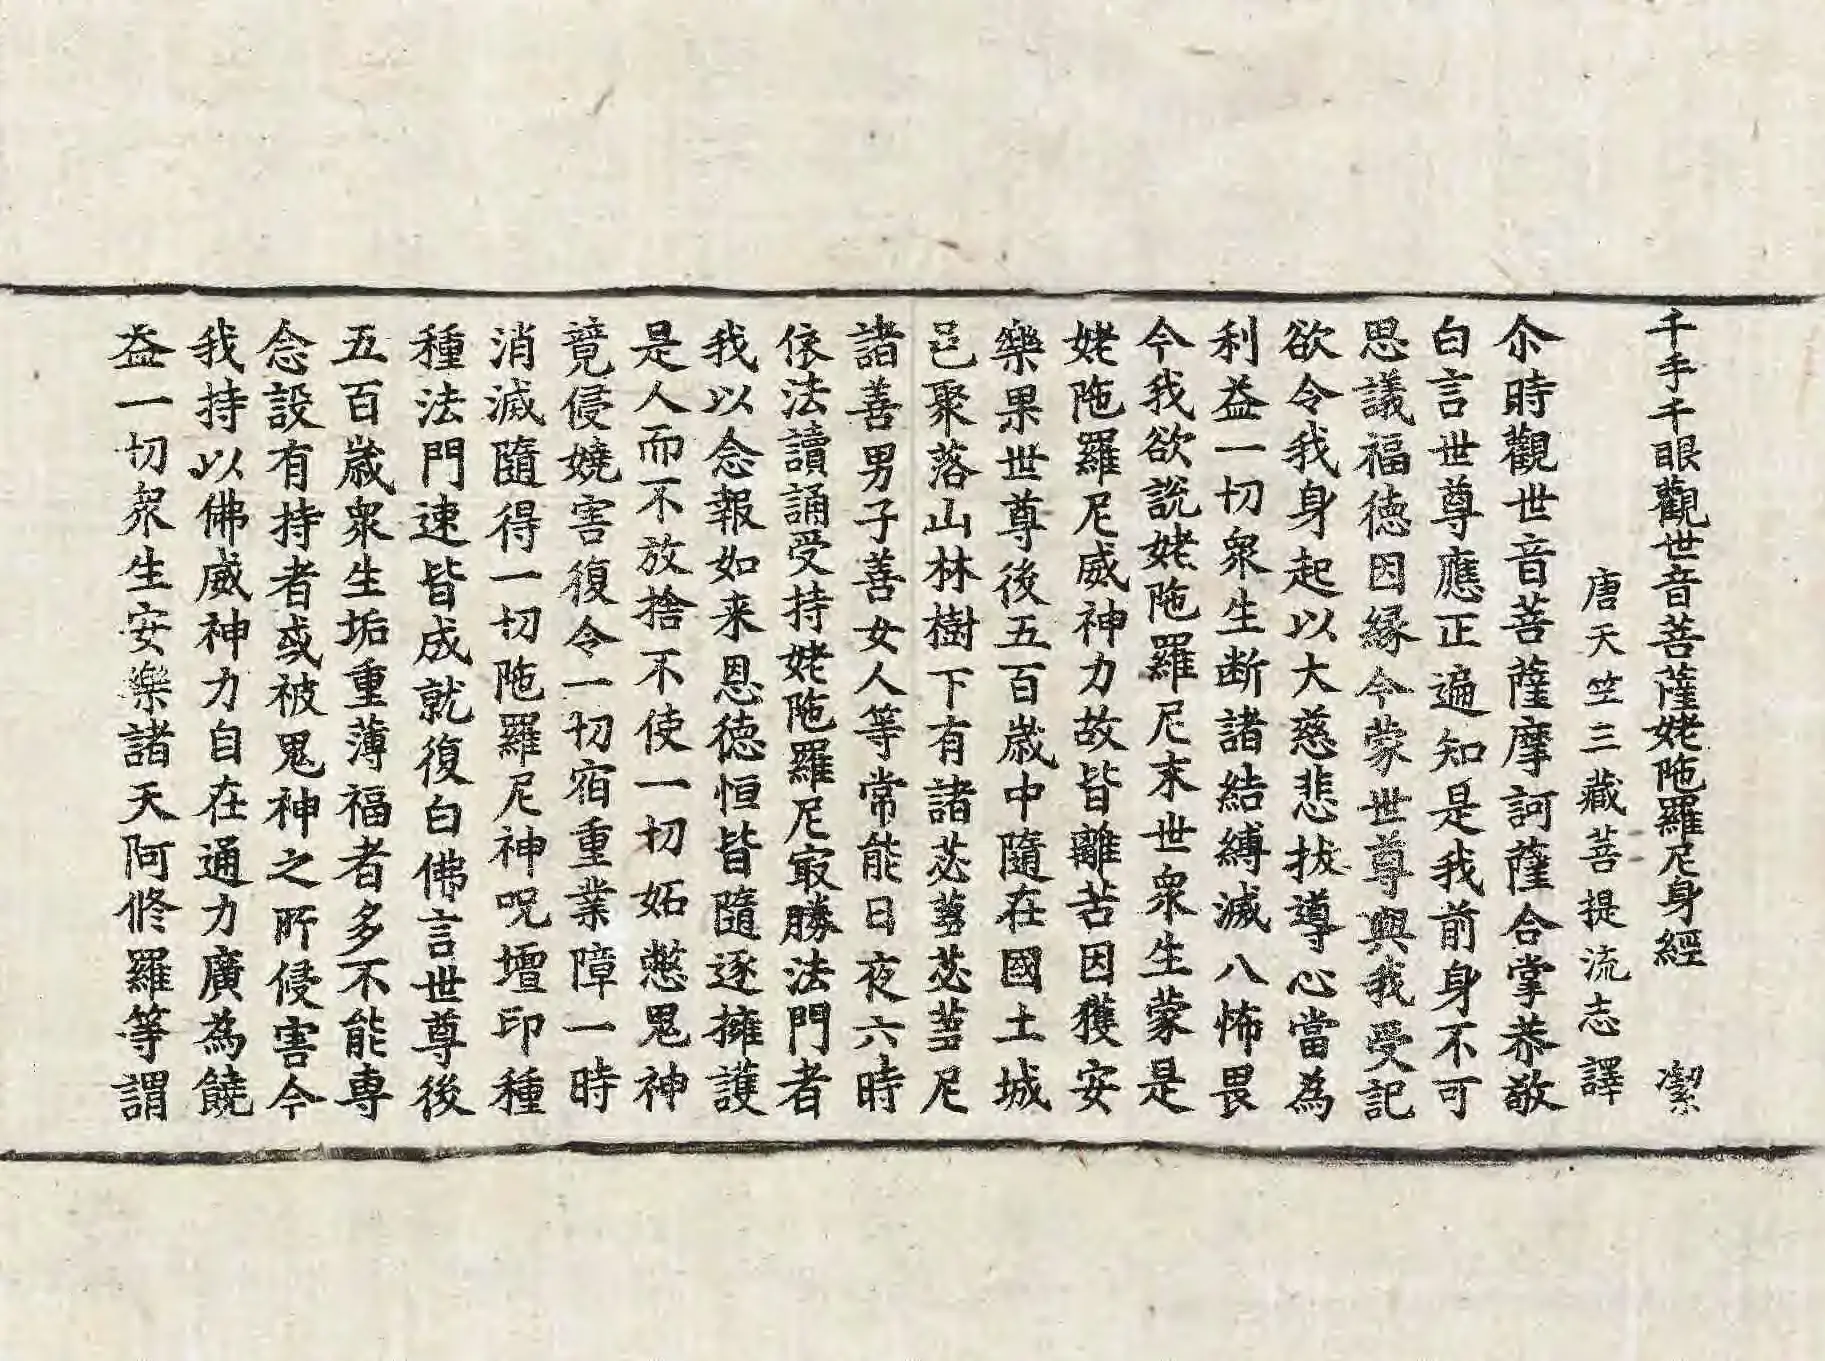 千手千眼觀世音菩薩姥陁羅尼身經 潔
唐天竺三藏菩提流志譯
尒時觀世音菩薩摩訶薩合掌恭敬
白言世尊應正遍知是我前身不可
思議福德因緣今蒙世尊與我受記
欲令我身起以大慈悲拔導心當為
利益一切衆生断諸結縛滅八怖畏
今我欲說姥陁羅尼末世衆生蒙是
姥陁羅尼威神力故皆離苦因獲安
樂果世尊後五百歲中隨在國土城
邑聚落山林樹下有諸苾蒭苾蒭尼
諸善男子善女人等常能日夜六時
依法讀誦受持姥陁羅尼冣勝法門者
我以念報如来恩德恒皆隨逐擁護
是人而不放捨不使一切妬憋鬼神
竟侵嬈害復令一切宿重業障一時
消滅隨得一切陁羅尼神呪壇印種
種法門速皆成就復白佛言世尊後
五百歲衆生垢重薄福者多不能專
念設有持者或被鬼神之所侵害今
我持以佛威神力自在通力廣為饒
益一切衆生安樂諸天阿脩羅等謂